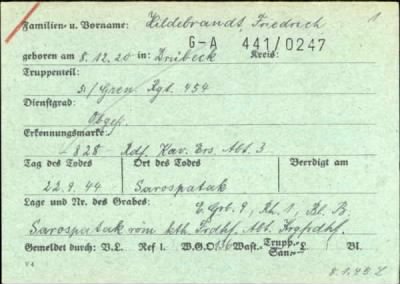 Familien- u. Vorname: Hildebrandt, Friedrich 1
G-A 441/0247
geboren am 8.12.20 in: Drübeck Kreis:
Truppenteil:
5/Gren. Rgt. 454
Dienstgrad
Obgefr.
Erkennungsmarke:
-828 Rdf. Kav. Ers. Abt. 3
Tag des Todes Ort des Todes Beerdigt am
22.9.44 Sarospatak
Lage und Nr. des Grabes: E. Grb. 9, Rh. 1, Bl. B.
Sarospatak röm. kth. Frdhf. Abt.
Gemeldet durch: V.L. Ref I. W.G.O. 136 Wast.- Trupp.- San.- L Bl.
V 4